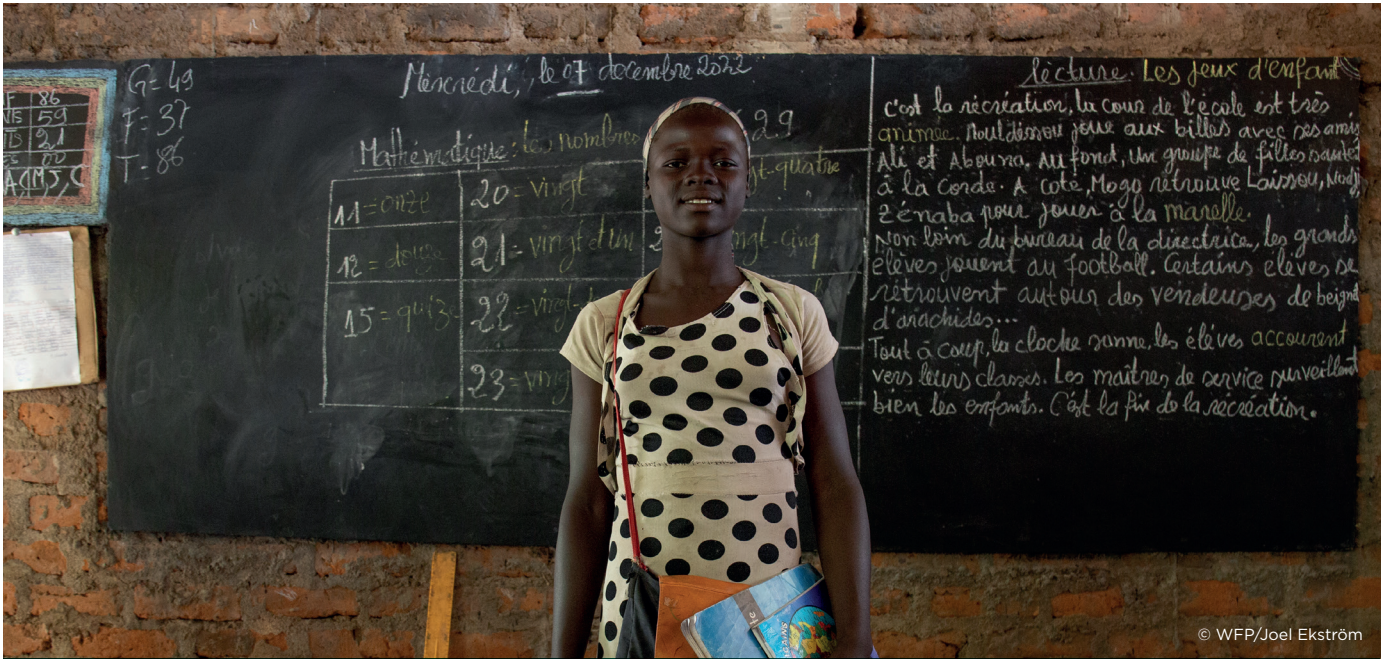 F 86
59
21
00
G = 49
F = 37
T = 86
Mercrédi, le 07 decembre 2022
Mathématique: les nombres 29
11 = onze
20 = vingt
gt-quatre
12 = douze
21 = vingt et un
ngt-cinq
15 = quize
22 = vingt-
23 = ving
lécture. Les jeux d'enfant
C'est la récréation, la cour de l'école est très
animée. joue aux billes avec ses amis
Ali et Abouna. Au fond, un groupe de filles saute
à la corde. A coté, Mogo retrouve Laissou, Nodj
Zénaba pour jouer à la marelle.
Non loin du bureau de la directrice, les grands
élèves jouent au football. Certains élèves se
rétrouvent autour des vendeuses de beigne
d'arachides...
Tout à coup, la cloche sonne, les élèves accourent
vers leurs classes. Les maîtres de service surveillent
bien les enfants. C'est la fin de la récréation.
© WFP/Joel Ekström